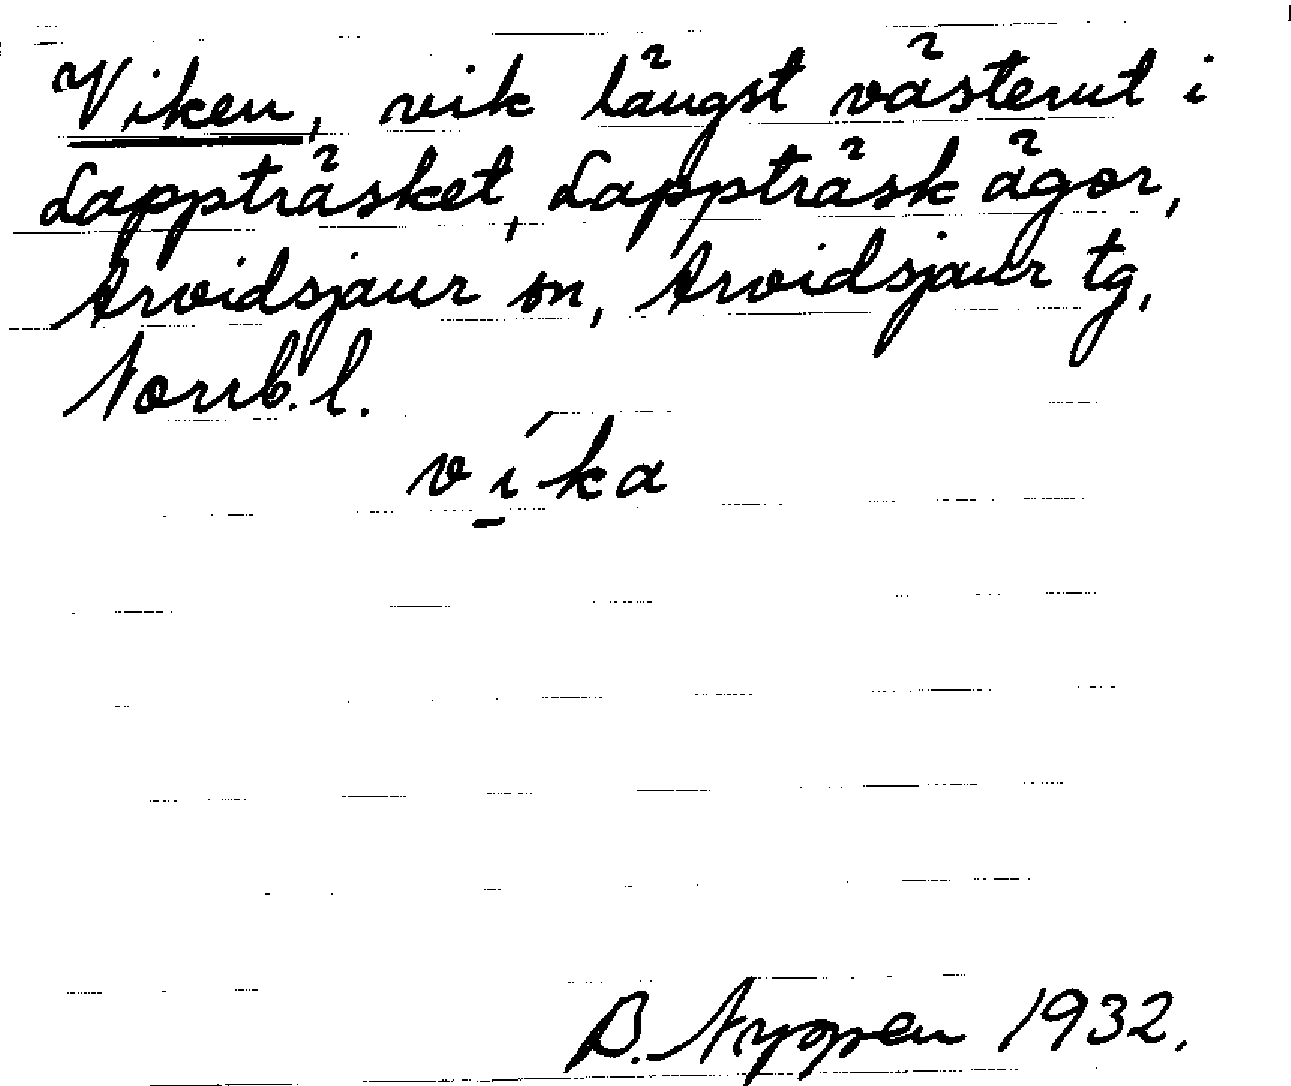 Viken, vik längst västerut i
Lappträsket, Lappträsk ägor,
Arvidsjaur sn, Arvidsjaur tg,
Norrb. l.
vi̱´ka
B. Nyppen 1932.